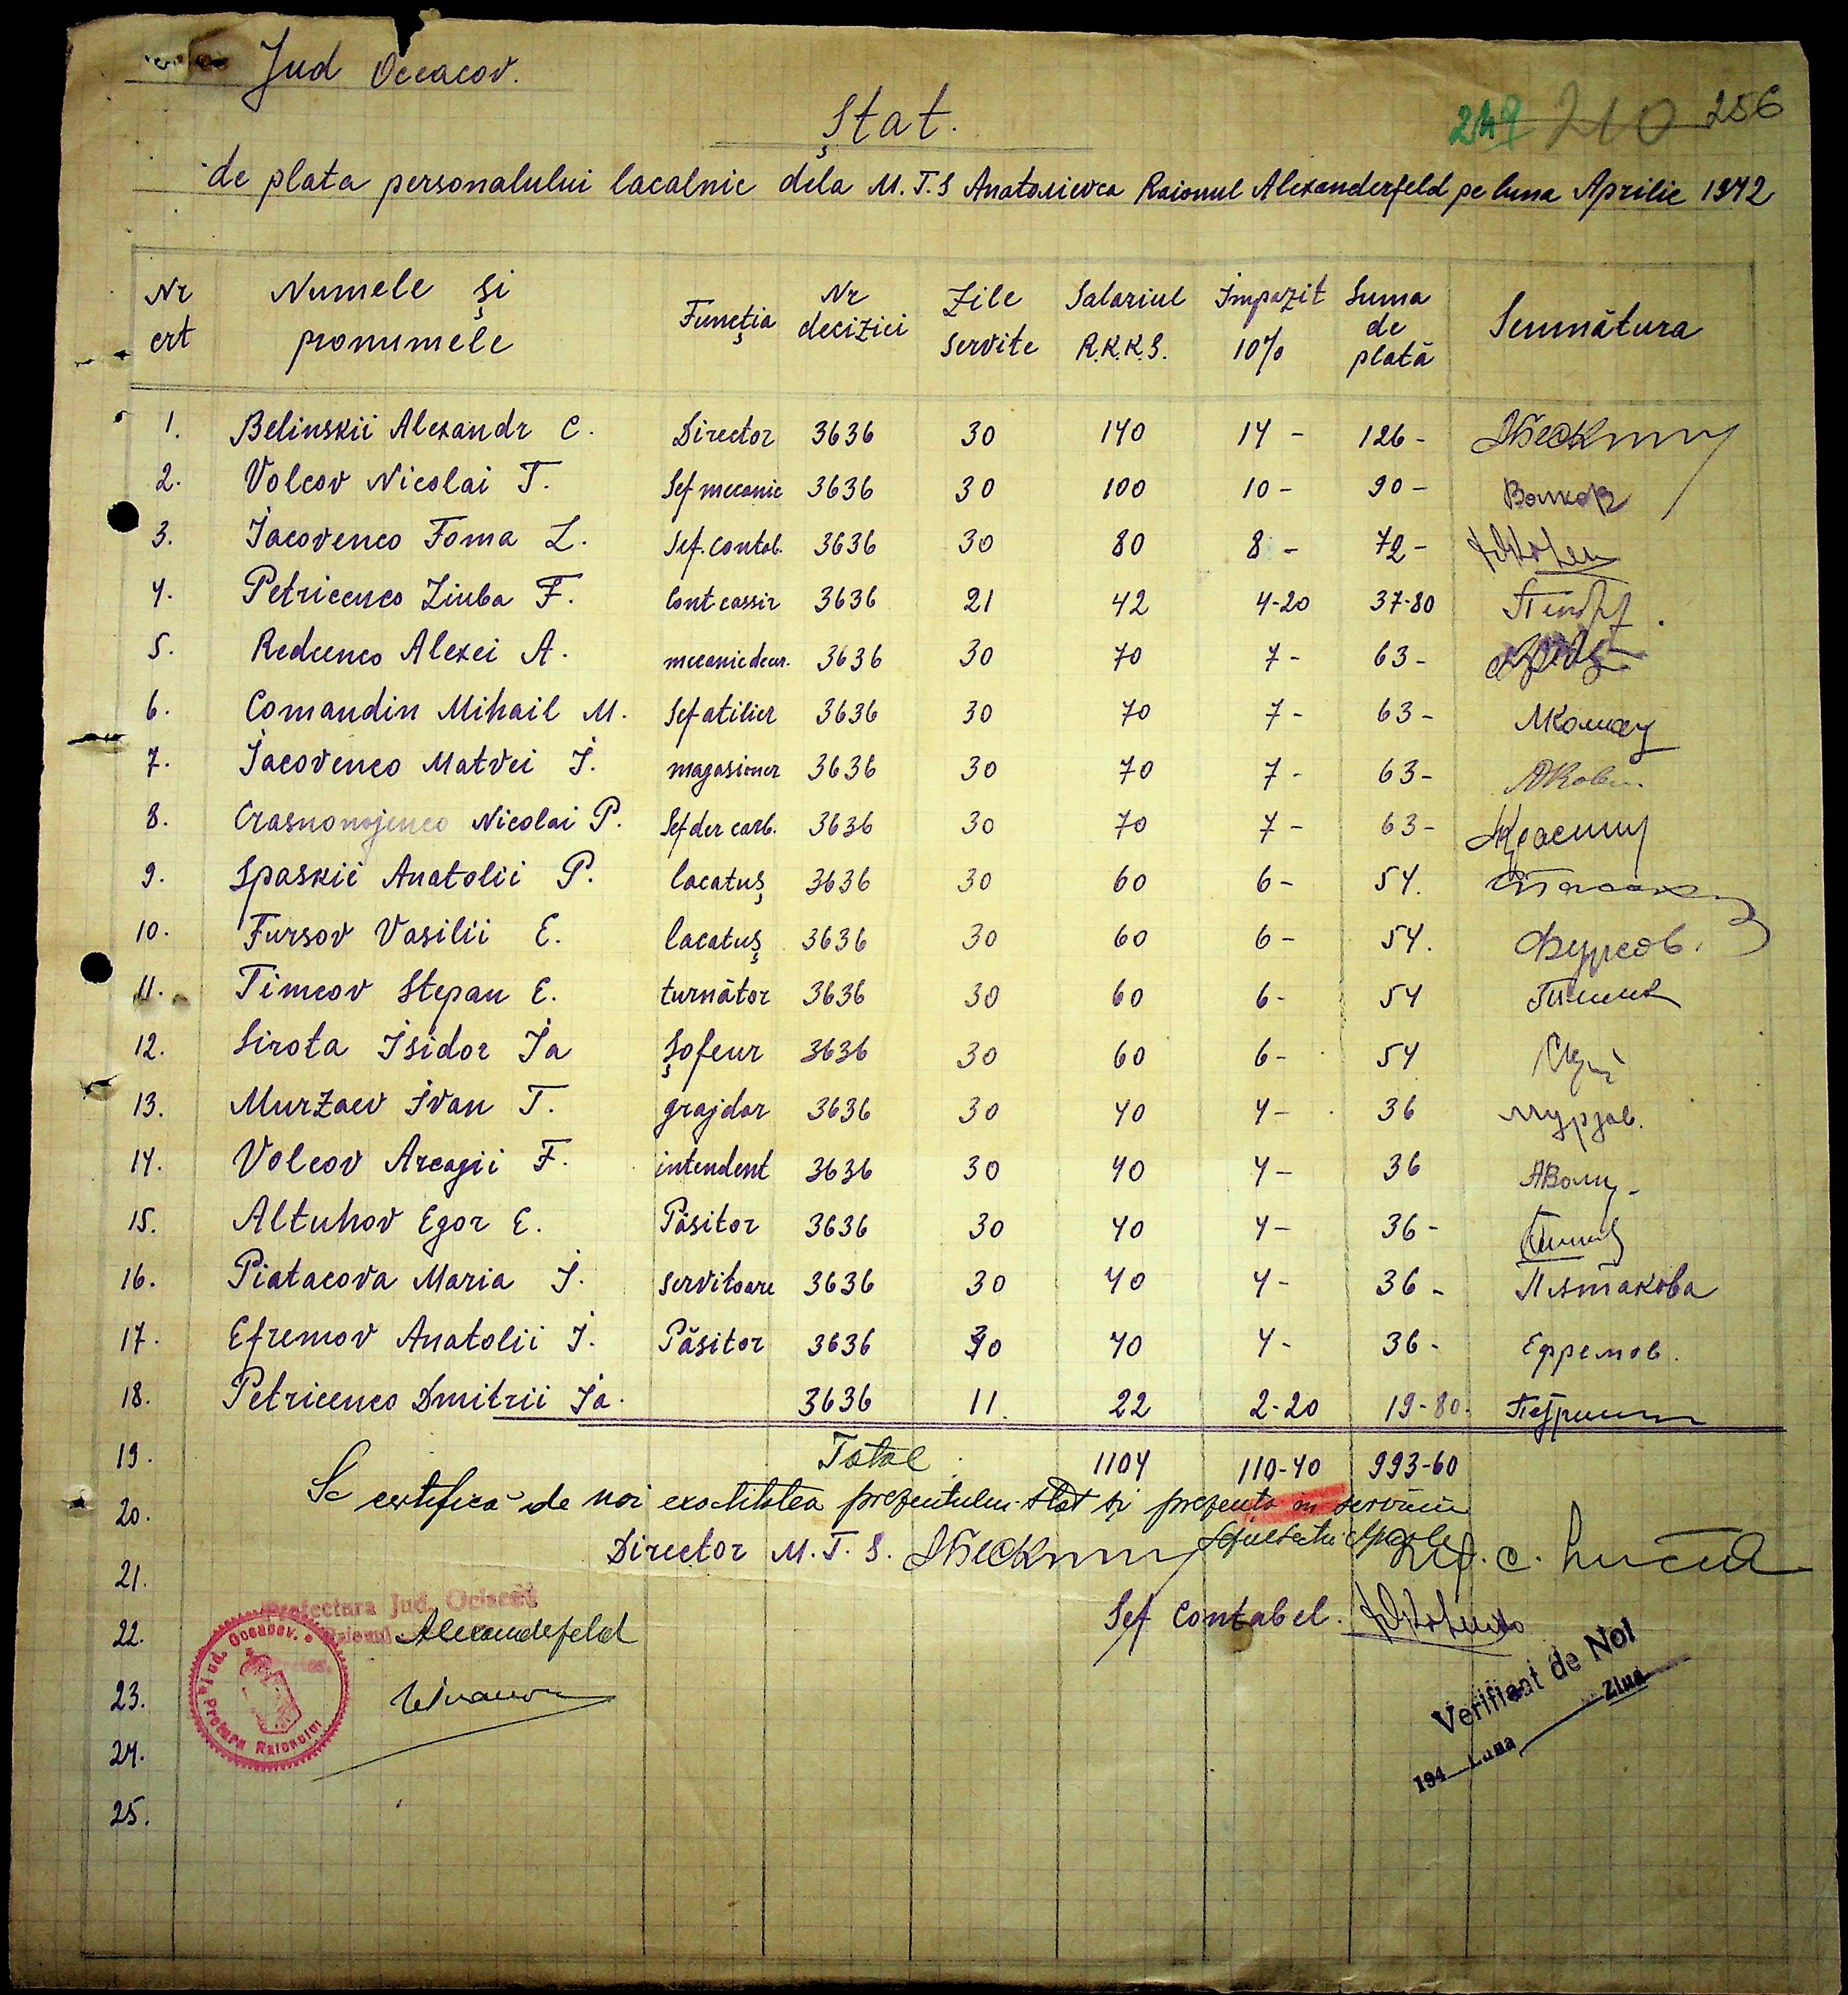 Jud Oceacov.
249 210 256
Ștat.
de plata personalului lacalnic dela M.T.S Anatoлievca Raionul Alexanderfeld pe luna Aprilie 1942
Nr crt Numele și pronumele Funcția Nr deciziei Zile servite Salariul R.K.K.S. Impozit 10% Suma de plată Semnătura
1. Belinskii Alexandr C. Director 3636 30 140 14 - 126 -
2. Volcov Nicolai T. Sef mecanic 3636 30 100 10 - 90 - Волков
3. Iacovenco Foma L. Sef. Contab. 3636 30 80 8 - 72 -
4. Petricenco Liuba F. Cont cassir 3636 21 42 4-20 37-80
5. Redcenco Alexei A. mecanic decur. 3636 30 70 7 - 63 -
6. Comandin Mihail M. Sef atilier 3636 30 70 7 - 63 -
7. Iacovenco Matvei I. magasioner 3636 30 70 7 - 63 -
8. Crasnonojenco Nicolai P. Sef der carb. 3636 30 70 7 - 63 -
9. Spaskii Anatolii P. lacatuș 3636 30 60 6 - 54.
10. Fursov Vasilii E. lacatuș 3636 30 60 6 - 54. Фурсов.
11. Timcov Stepan E. turnător 3636 30 60 6 - 54
12. Sirota Isidor Ia Șofeur 3636 30 60 6 - 54
13. Murzaev Ivan T. grajdar 3636 30 40 4 - 36 Мурзав.
14. Volcov Arcagii F. intendent 3636 30 40 4 - 36
15. Altuhov Egor E. Păsitor 3636 30 40 4 - 36 -
16. Piatacova Maria I. servitoare 3636 30 40 4 - 36 - Пятакова
17. Efremov Anatolii I. Păsitor 3636 30 40 4 - 36 - Ефремов.
18. Petricenco Dmitrii Ia. 3636 11. 22 2-20 19-80.
19. Total 1104 110-40 993-60
Se certifică de noi exactitatea prezentului stat și prezența in serviciu
20.
Director M.T.S.
21.
Sef Contabel.
Prefectura Jud. Oceacov
Raionul Alexandefeld
22.
Jud. Oceacov. Pretura Raionului
23.
Verifiat de Noi
194 Luna Ziua
24.
25.